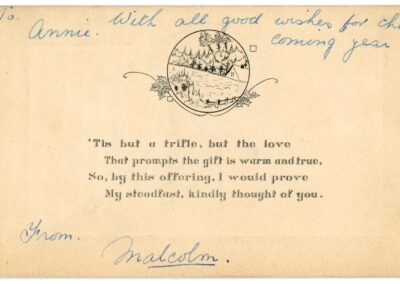 To.
Annie. With all good wishes for
coming year
'Tis but a trifle, but the love
That prompts the gift is warm and true,
So, by this offering, I would prove
My steadfast, kindly thought of you.
From.
Malcolm.